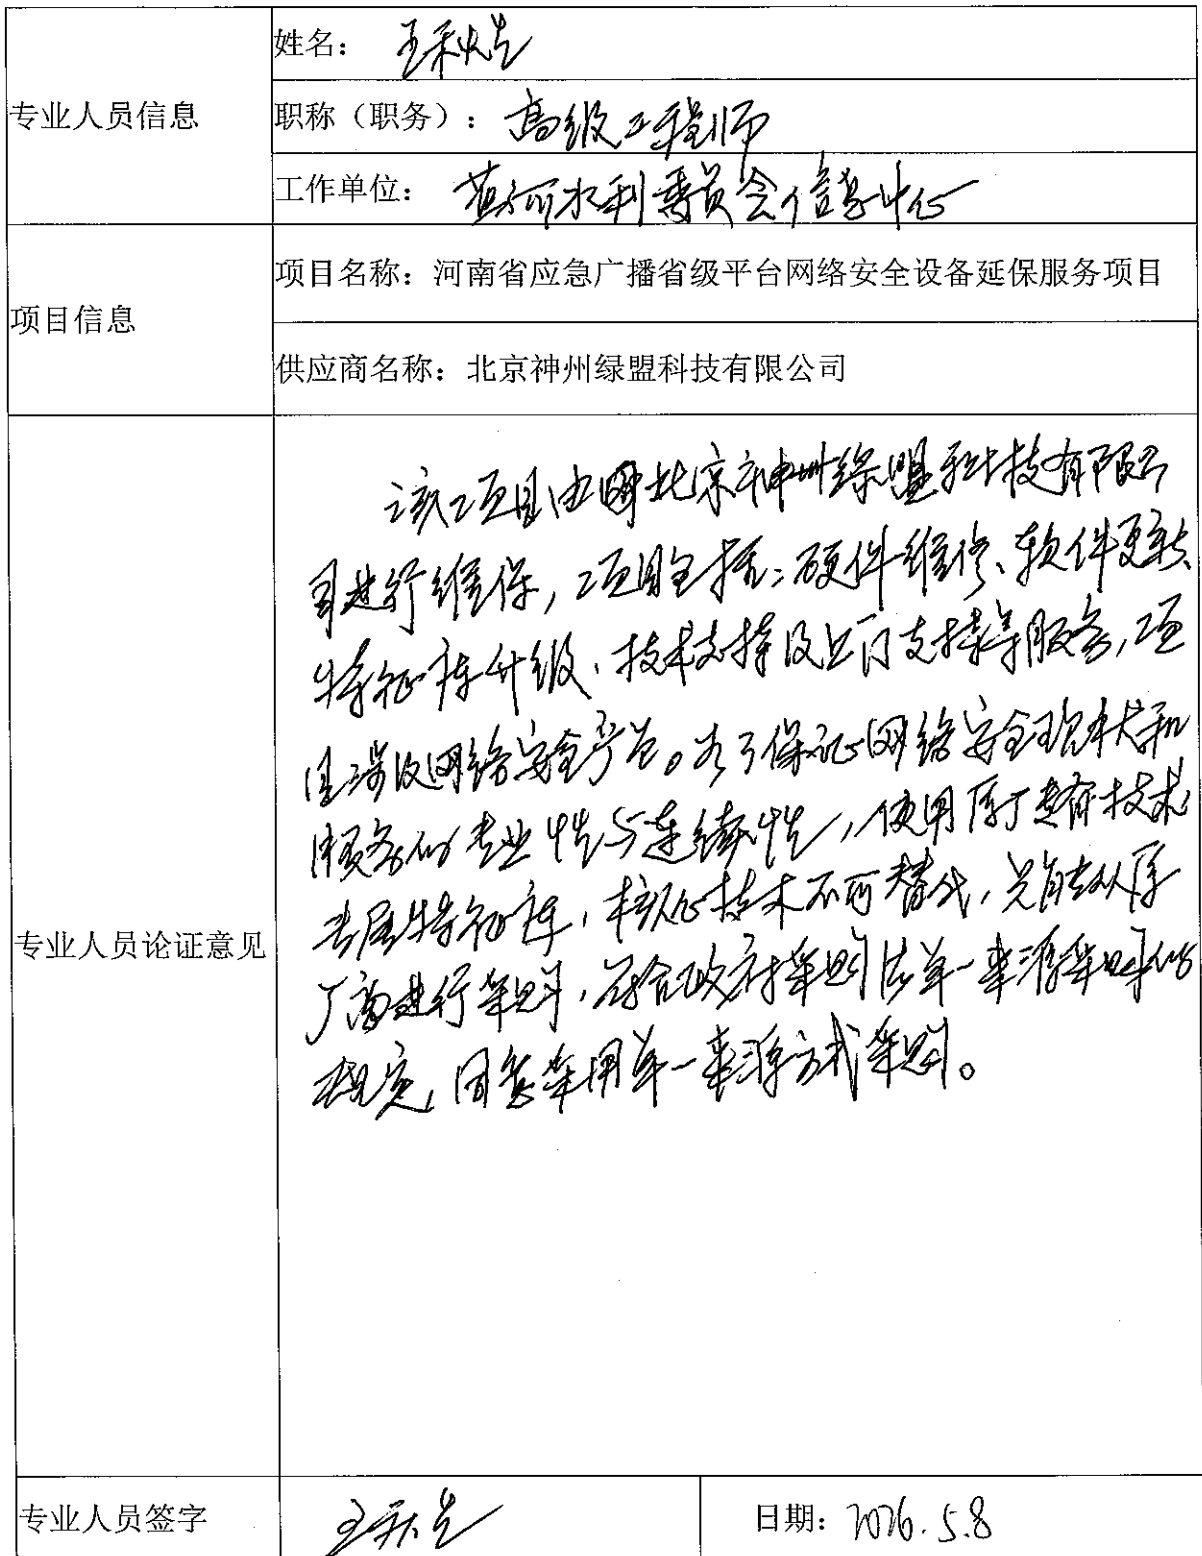 专业人员信息
姓名：王秋生
职称（职务）：高级工程师
工作单位：黄河水利委员会信息中心
项目信息
项目名称：河南省应急广播省级平台网络安全设备延保服务项目
供应商名称：北京神州绿盟科技有限公司
专业人员论证意见
该项目由北京神州绿盟科技有限公
司进行维保，项目包括：硬件维修、软件更新、
特征库升级、技术支持及上门支持等服务，项
目涉及网络安全产品。为了保证网络安全现状和
服务的专业性与连续性，使用原厂技术
专属特征库，核心技术不可替代，只能从原
厂商进行采购，符合政府采购法单一来源采购的
规定，同意采用单一来源方式采购。
专业人员签字
日期：2026.5.8